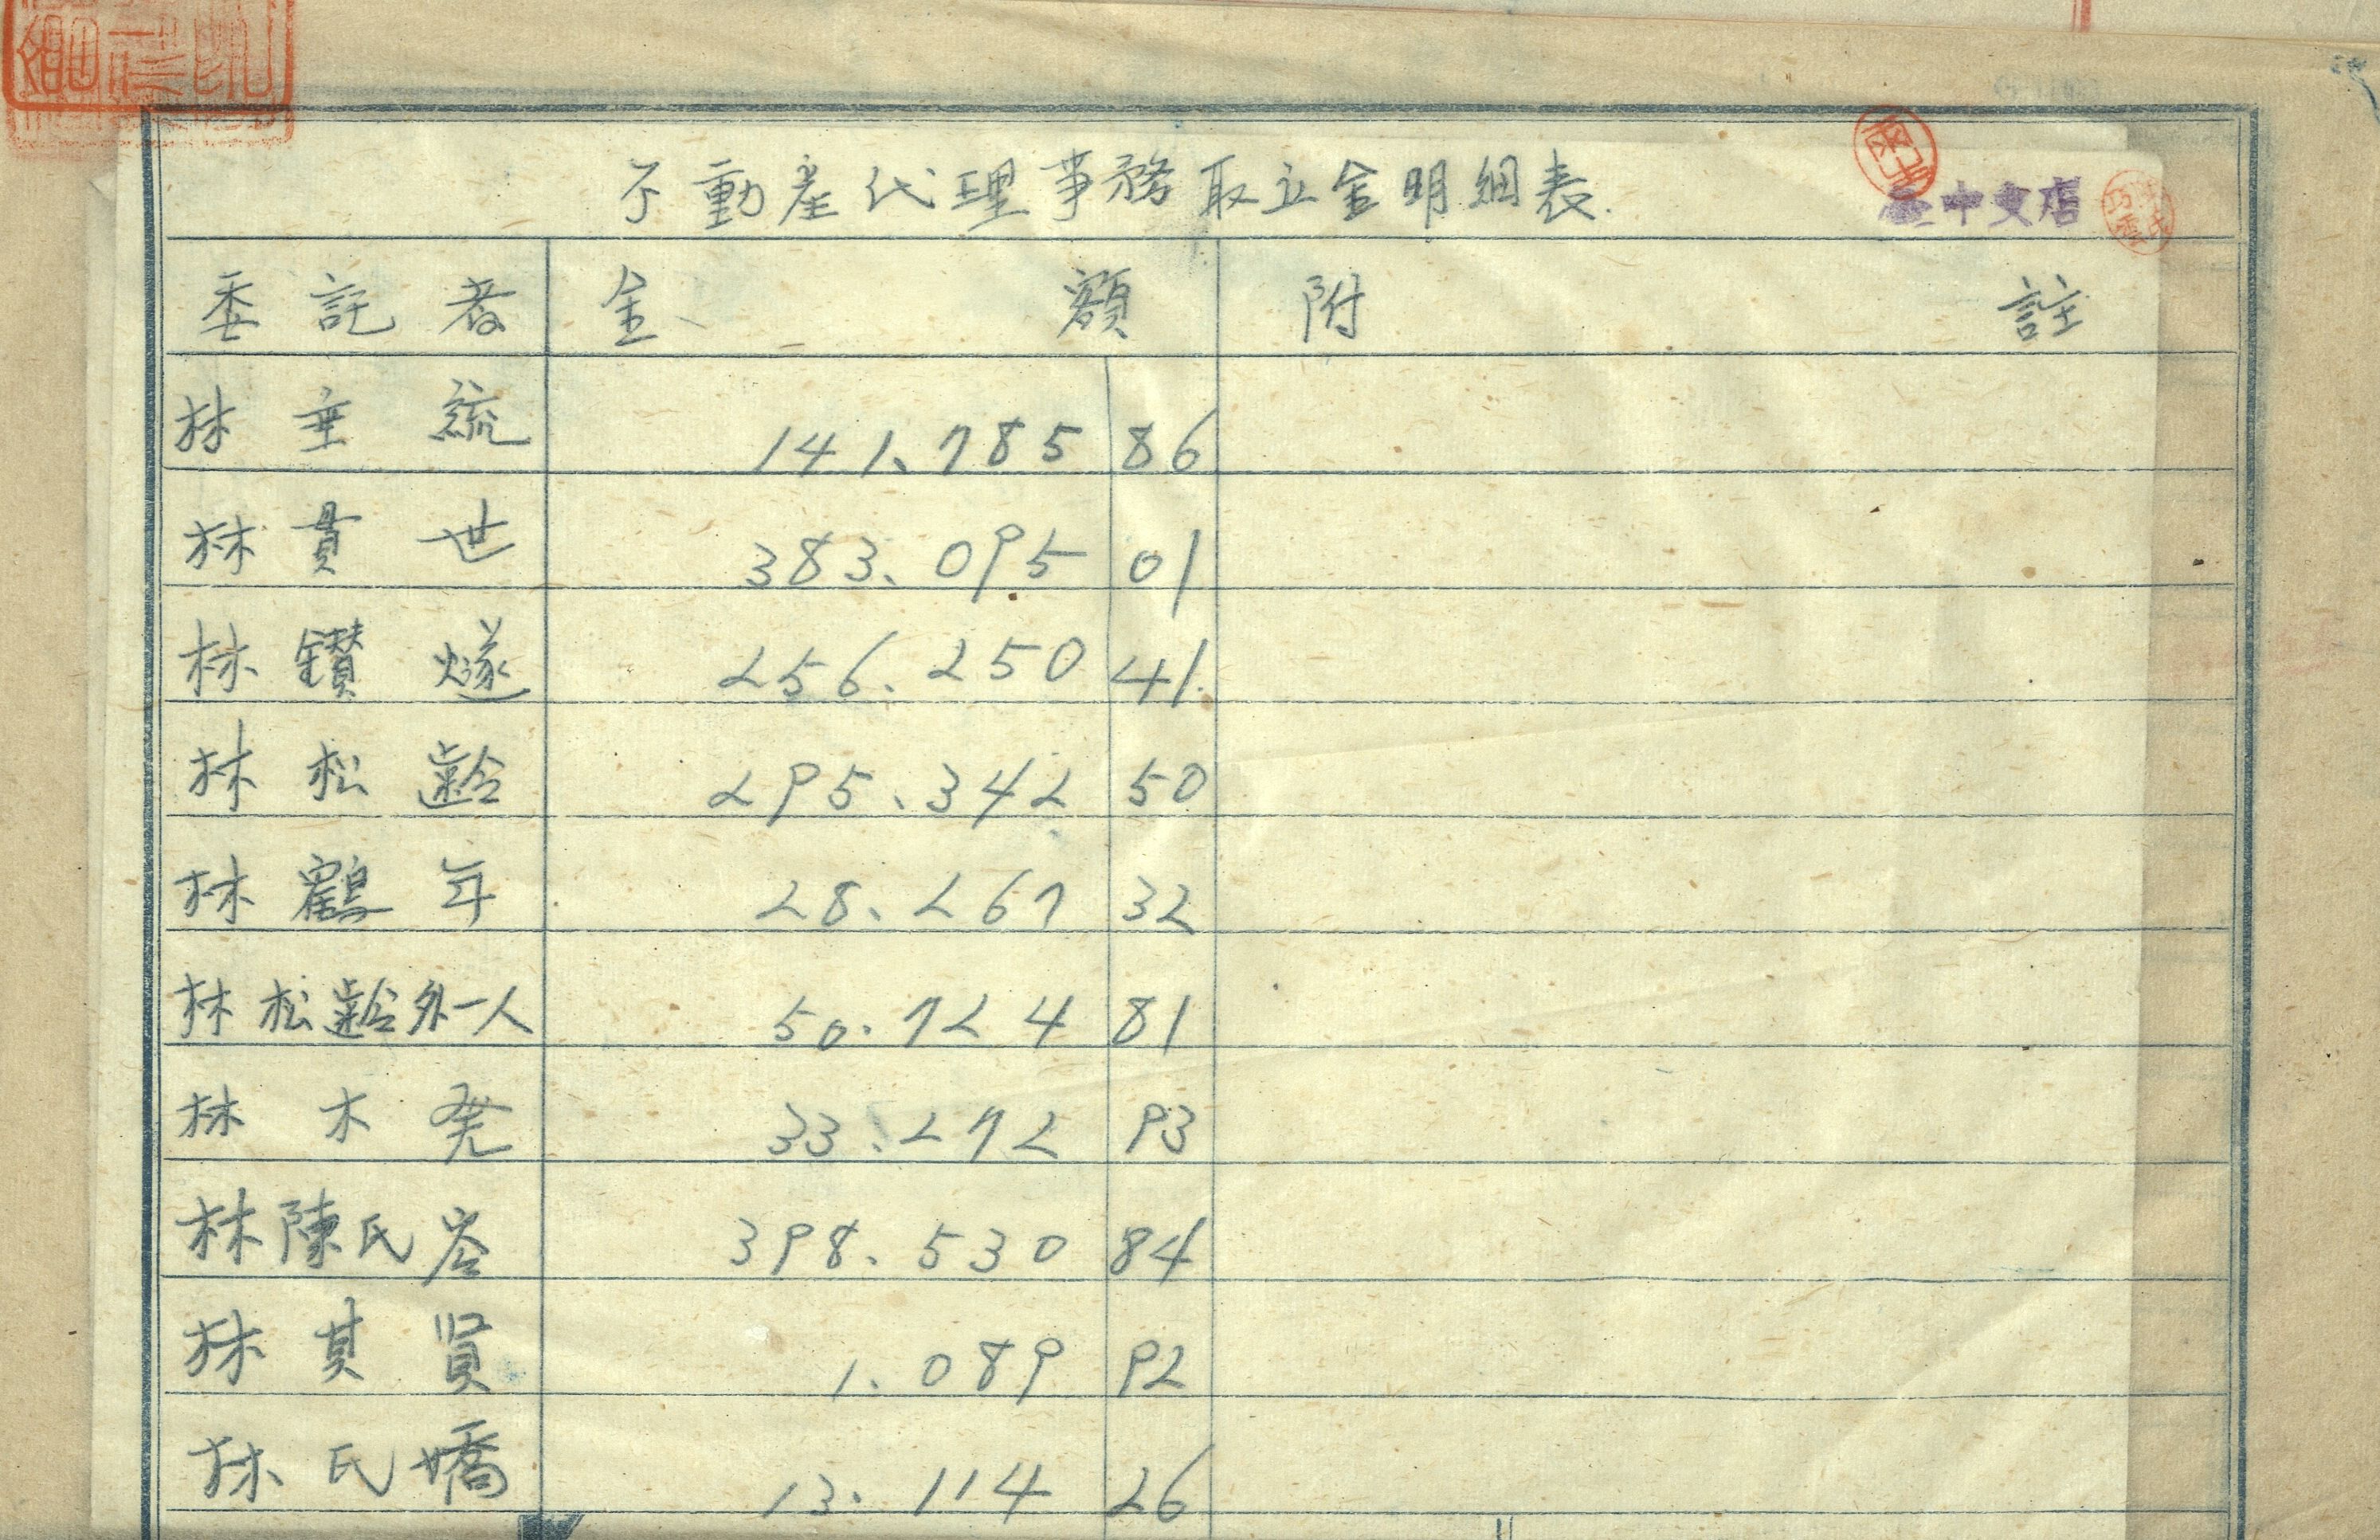 不動產代理事務取立金明細表.
臺中支店
委託者 金額 附註
林垂統 141.785 86
林貫世 383.095 01
林鑽燧 256.250 41
林松齡 295.342 50
林鶴年 28.267 32
林松齡外一人 50.724 81
林木発 33.272 93
林陳氏岺 398.530 84
林其賢 1.089 92
林氏嬌 13.114 26